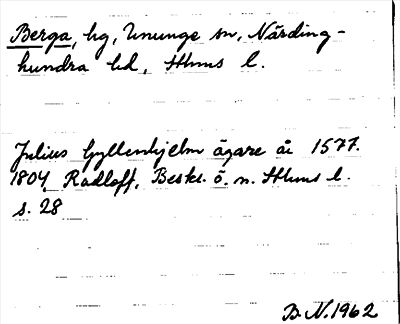 Berga, hg, Ununge sn, Närding-
hundra hd, Sthms l.
Julius Gyllenhjelm ägare år 1577.
1804 Radloff, Beskr. ö. n. Sthms l.
s. 28
B.N. 1962